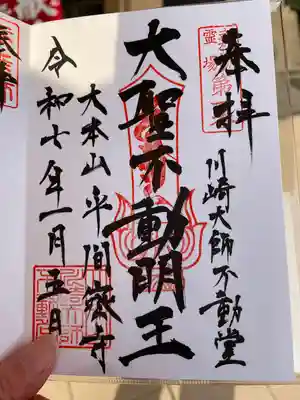 奉拝
川崎大師不動堂
大聖不動明王
大本山平間寺
令和七年一月五日